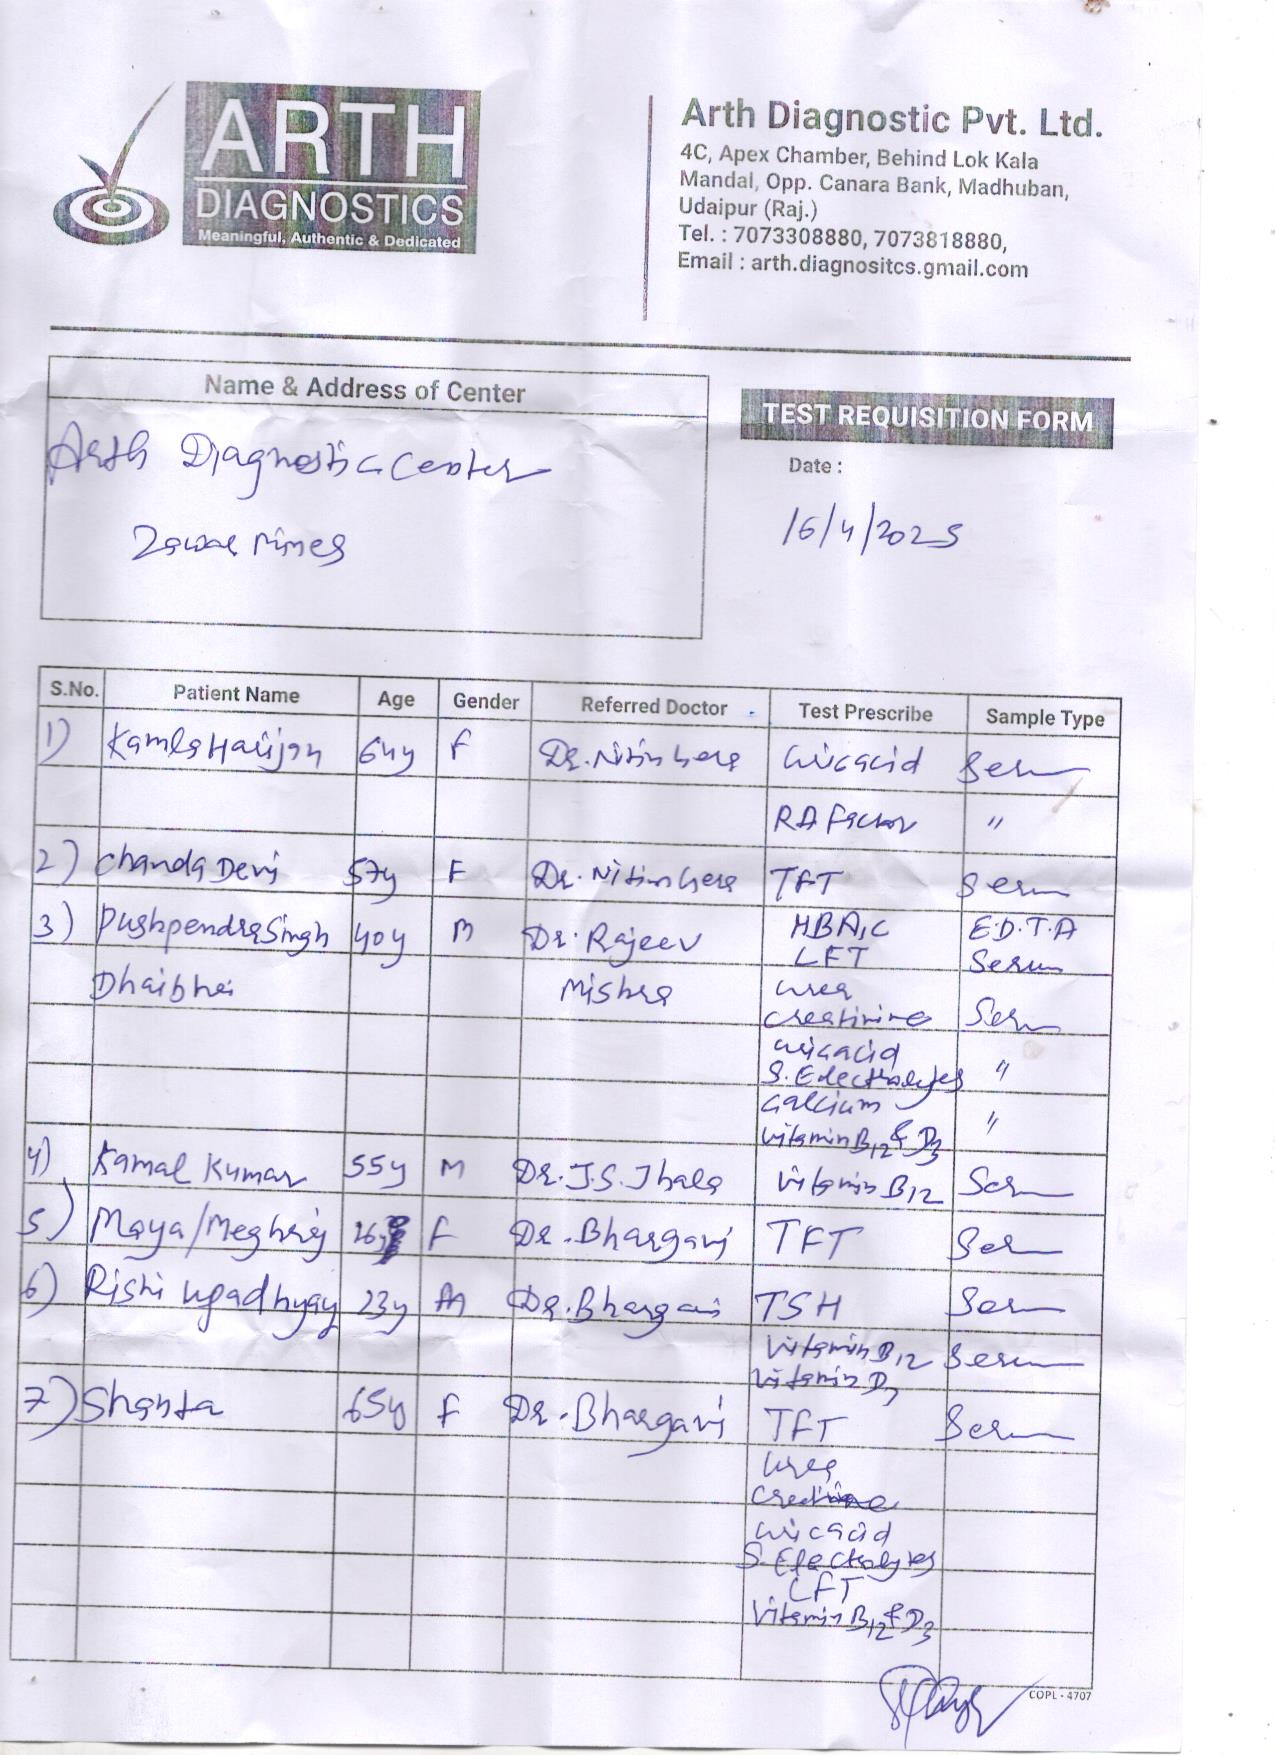 ARTH
DIAGNOSTICS
Meaningful, Authentic & Dedicated
Arth Diagnostic Pvt. Ltd.
4C, Apex Chamber, Behind Lok Kala
Mandal, Opp. Canara Bank, Madhuban,
Udaipur (Raj.)
Tel. : 7073308880, 7073818880,
Email : arth.diagnositcs.gmail.com
Name & Address of Center
Arth Diagnostic Center
Zawar Mines
TEST REQUISITION FORM
Date :
16/4/2025
S.No. Patient Name Age Gender Referred Doctor Test Prescribe Sample Type
1) Kamla Harijan 64y F Dr. Nitin Uric acid Serum
RA Factor "
2) Chanda Devi 57y F Dr. Nitin TFT Serum
3) Pushpendra Singh 40y M Dr. Rajeev HBA1C E.D.T.A
LFT Serum
Dhaibhai Mishra Urea
Creatinine Serum
Uric acid
S. Electrolytes "
Calcium
Vitamin B12 & D3 "
4) Kamal Kumar 55y M Dr. J.S. Jhala Vitamin B12 Serum
5) Maya/Meghraj 26y F Dr. Bhargavi TFT Serum
6) Rishi Upadhyay 23y M Dr. Bhargavi TSH Serum
Vitamin B12 Serum
Vitamin D3
7) Shanta 65y F Dr. Bhargavi TFT Serum
Urea
Creatinine
Uric acid
S. Electrolytes
LFT
Vitamin B12 & D3
COPL - 4707